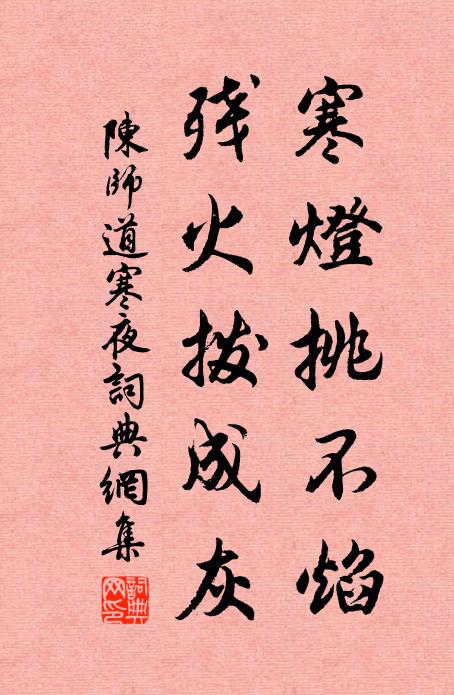 寒燈挑不焰
残火拨成灰
陳師道寒夜詞典網集
詞典網印